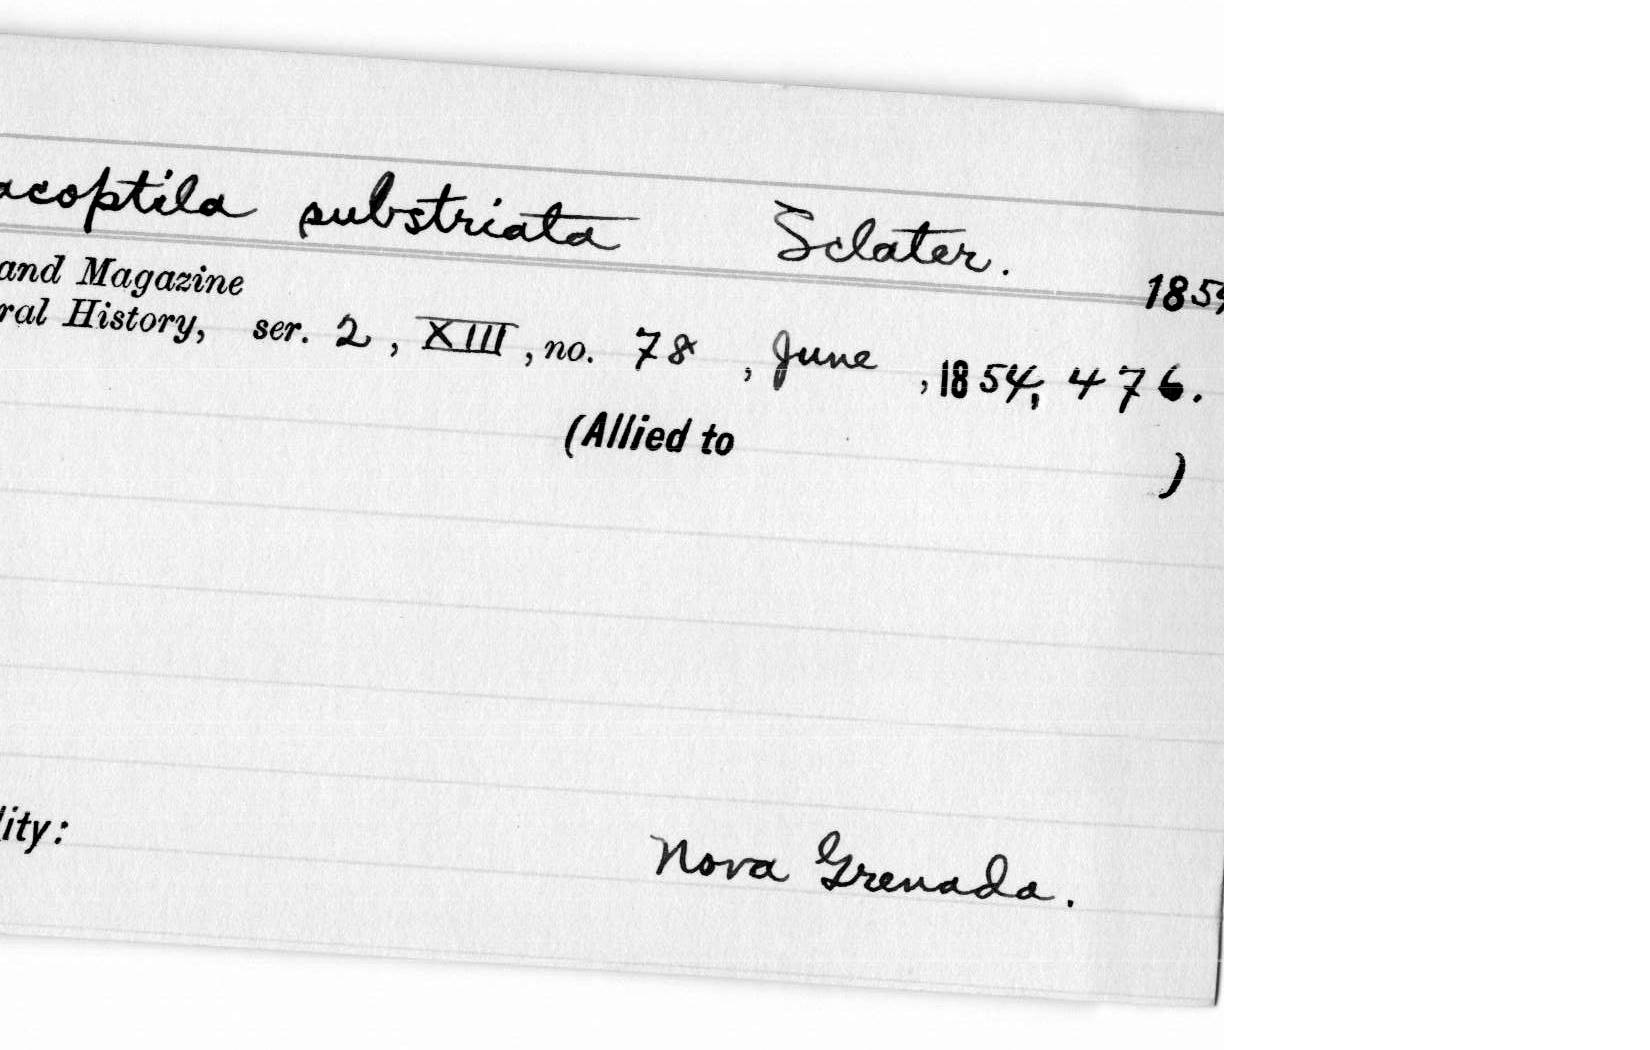 acoptila substriata Sclater.
1854
and Magazine
ral History, ser. 2, XIII, no. 78, June, 1854, 476.
(Allied to )
lity: Nova Grenada.